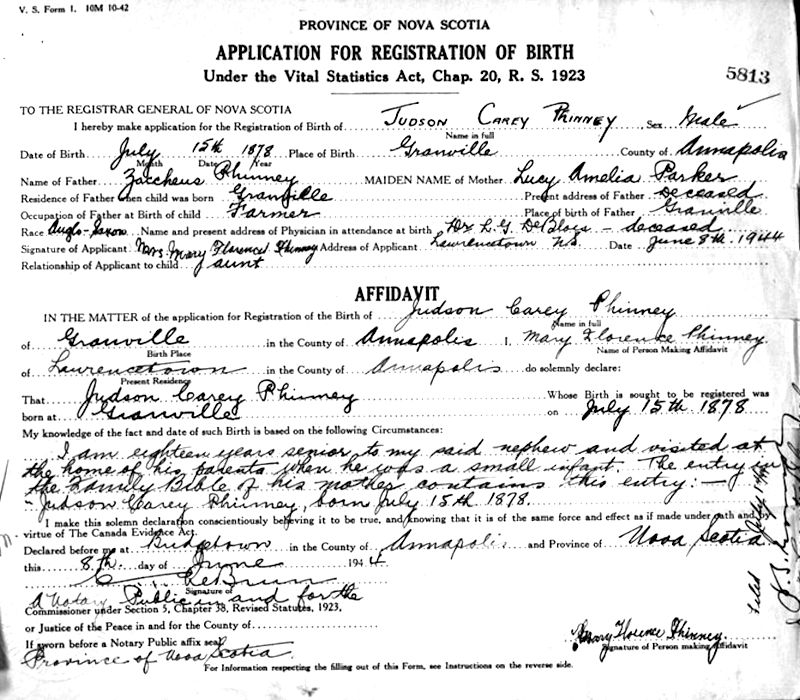 V. S. Form 1. 10M 10-42
PROVINCE OF NOVA SCOTIA
APPLICATION FOR REGISTRATION OF BIRTH
Under the Vital Statistics Act, Chap. 20, R. S. 1923
5813
TO THE REGISTRAR GENERAL OF NOVA SCOTIA
I hereby make application for the Registration of Birth of Judson Carey Phinney Sex Male
Name in full
Date of Birth July 15th 1878 Place of Birth Granville County of Annapolis
Month Date Year
Name of Father Zaccheus Phinney MAIDEN NAME of Mother Lucy Amelia Parker
Residence of Father when child was born Granville Present address of Father deceased
Occupation of Father at Birth of child Farmer Place of birth of Father Granville
Race Anglo-Saxon Name and present address of Physician in attendance at birth Dr L. G. DeBlois - deceased
Signature of Applicant Mrs. Mary Florence Phinney Address of Applicant Lawrencetown N.S. Date June 8th, 1944
Relationship of Applicant to child aunt
AFFIDAVIT
IN THE MATTER of the application for Registration of the Birth of Judson Carey Phinney
Name in full
of Granville in the County of Annapolis I, Mary Florence Phinney
Birth Place Name of Person Making Affidavit
of Lawrencetown in the County of Annapolis do solemnly declare:
Present Residence
That Judson Carey Phinney Whose Birth is sought to be registered was
born at Granville on July 15th 1878
My knowledge of the fact and date of such Birth is based on the following Circumstances:
I am eighteen years senior to my said nephew and visited at
the home of his parents when he was a small infant. The entry in
the Family Bible of his mother contains this entry: —
"Judson Carey Phinney, born July 15th 1878.
I make this solemn declaration conscientiously believing it to be true, and knowing that it is of the same force and effect as if made under oath and by
virtue of The Canada Evidence Act.
Declared before me at Bridgetown in the County of Annapolis and Province of Nova Scotia
this 8th day of June 1944
C DeBrun
Signature of
A Notary Public in and for the
Commissioner under Section 5, Chapter 38, Revised Statutes, 1923.
or Justice of the Peace in and for the County of
If sworn before a Notary Public affix seal
Province of Nova Scotia
Mary Florence Phinney
Signature of Person making Affidavit
For Information respecting the filling out of this Form, see Instructions on the reverse side.
Filed